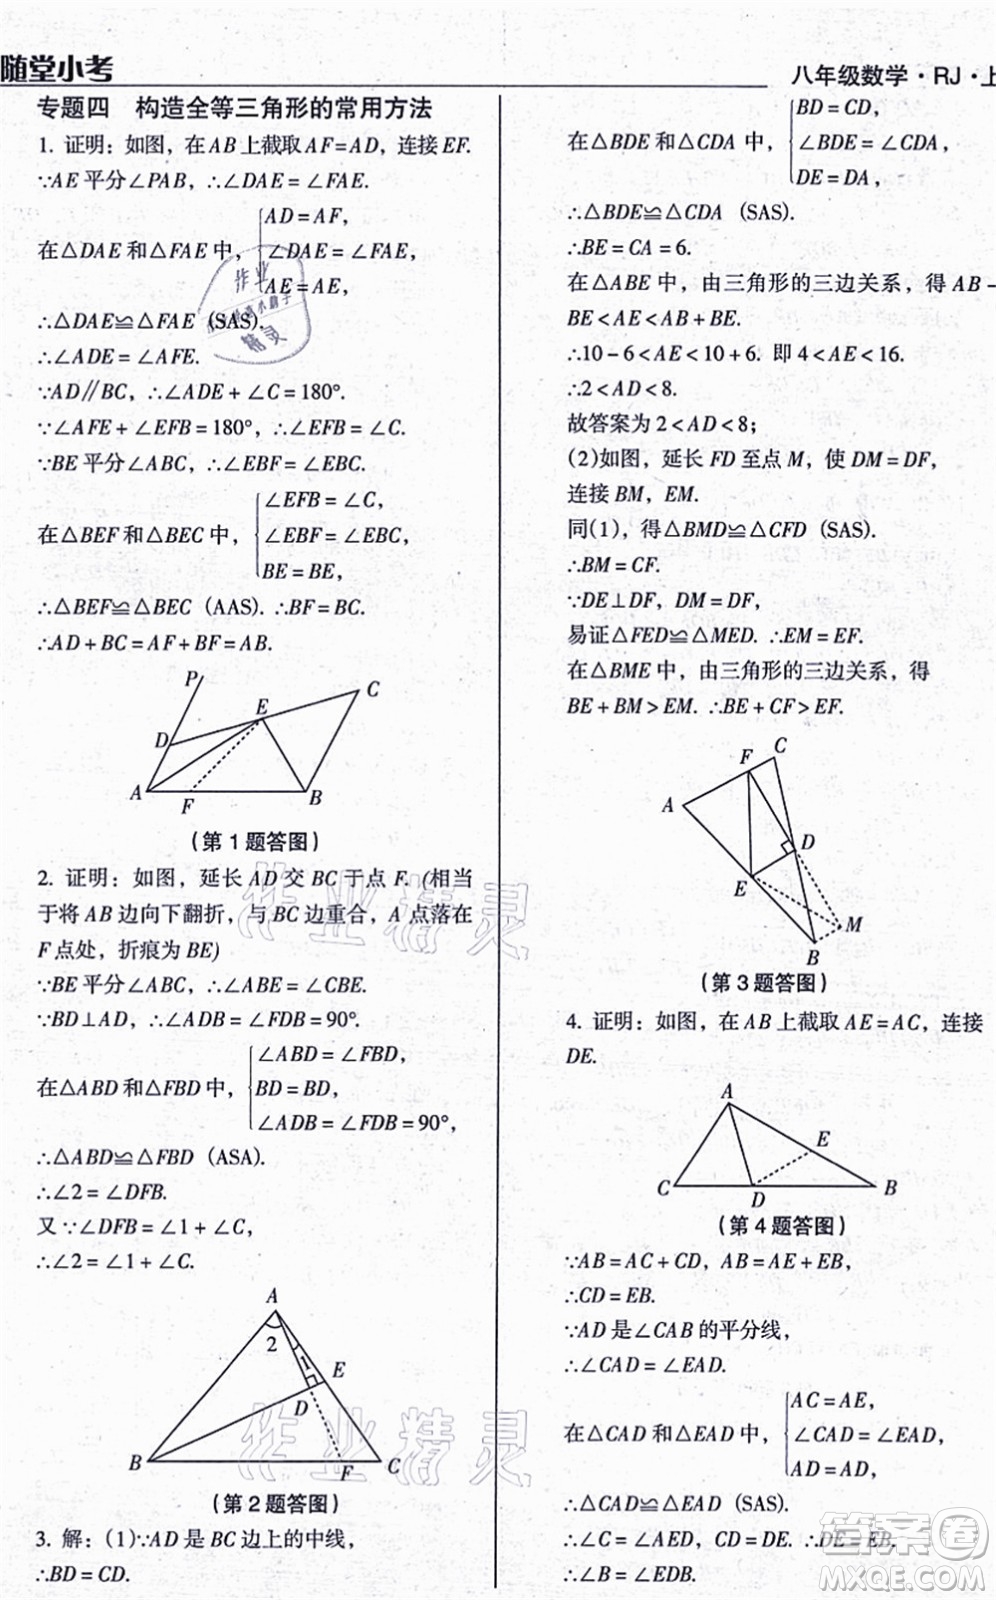 随堂小考
八年级数学·RJ·上
专题四 构造全等三角形的常用方法
1. 证明：如图，在AB上截取AF=AD，连接EF.
∵AE平分∠PAB，∴∠DAE=∠FAE.
AD=AF，
在△DAE和△FAE中，∠DAE=∠FAE，
AE=AE，
∴△DAE≌△FAE (SAS).
∴∠ADE=∠AFE.
∵AD∥BC，∴∠ADE+∠C=180°.
∵∠AFE+∠EFB=180°，∴∠EFB=∠C.
∵BE平分∠ABC，∴∠EBF=∠EBC.
∠EFB=∠C，
在△BEF和△BEC中，∠EBF=∠EBC，
BE=BE，
∴△BEF≌△BEC (AAS). ∴BF=BC.
∴AD+BC=AF+BF=AB.
P
C
E
D
A F B
(第1题答图)
2. 证明：如图，延长AD交BC于点F. (相当
于将AB边向下翻折，与BC边重合，A点落在
F点处，折痕为BE)
∵BE平分∠ABC，∴∠ABE=∠CBE.
∵BD⊥AD，∴∠ADB=∠FDB=90°.
∠ABD=∠FBD，
在△ABD和△FBD中，BD=BD，
∠ADB=∠FDB=90°，
∴△ABD≌△FBD (ASA).
∴∠2=∠DFB.
又∵∠DFB=∠1+∠C，
∴∠2=∠1+∠C.
A
2
1 E
D
B F C
(第2题答图)
3. 解：(1)∵AD是BC边上的中线，
∴BD=CD.
BD=CD，
在△BDE和△CDA中，∠BDE=∠CDA，
DE=DA，
∴△BDE≌△CDA (SAS).
∴BE=CA=6.
在△ABE中，由三角形的三边关系，得AB-
BE<AE<AB+BE.
∴10-6<AE<10+6. 即4<AE<16.
∴2<AD<8.
故答案为2<AD<8；
(2)如图，延长FD至点M，使DM=DF，
连接BM，EM.
同(1)，得△BMD≌△CFD (SAS).
∴BM=CF.
∵DE⊥DF，DM=DF，
易证△FED≌△MED. ∴EM=EF.
在△BME中，由三角形的三边关系，得
BE+BM>EM. ∴BE+CF>EF.
C
F
A
D
E
M
B
(第3题答图)
4. 证明：如图，在AB上截取AE=AC，连接
DE.
A
E
C D B
(第4题答图)
∵AB=AC+CD，AB=AE+EB，
∴CD=EB.
∵AD是∠CAB的平分线，
∴∠CAD=∠EAD.
AC=AE，
在△CAD和△EAD中，∠CAD=∠EAD，
AD=AD，
∴△CAD≌△EAD (SAS).
∴∠C=∠AED，CD=DE. ∴DE=EB.
∴∠B=∠EDB.
作业精灵
作业精灵
答案圈
MXQE.COM